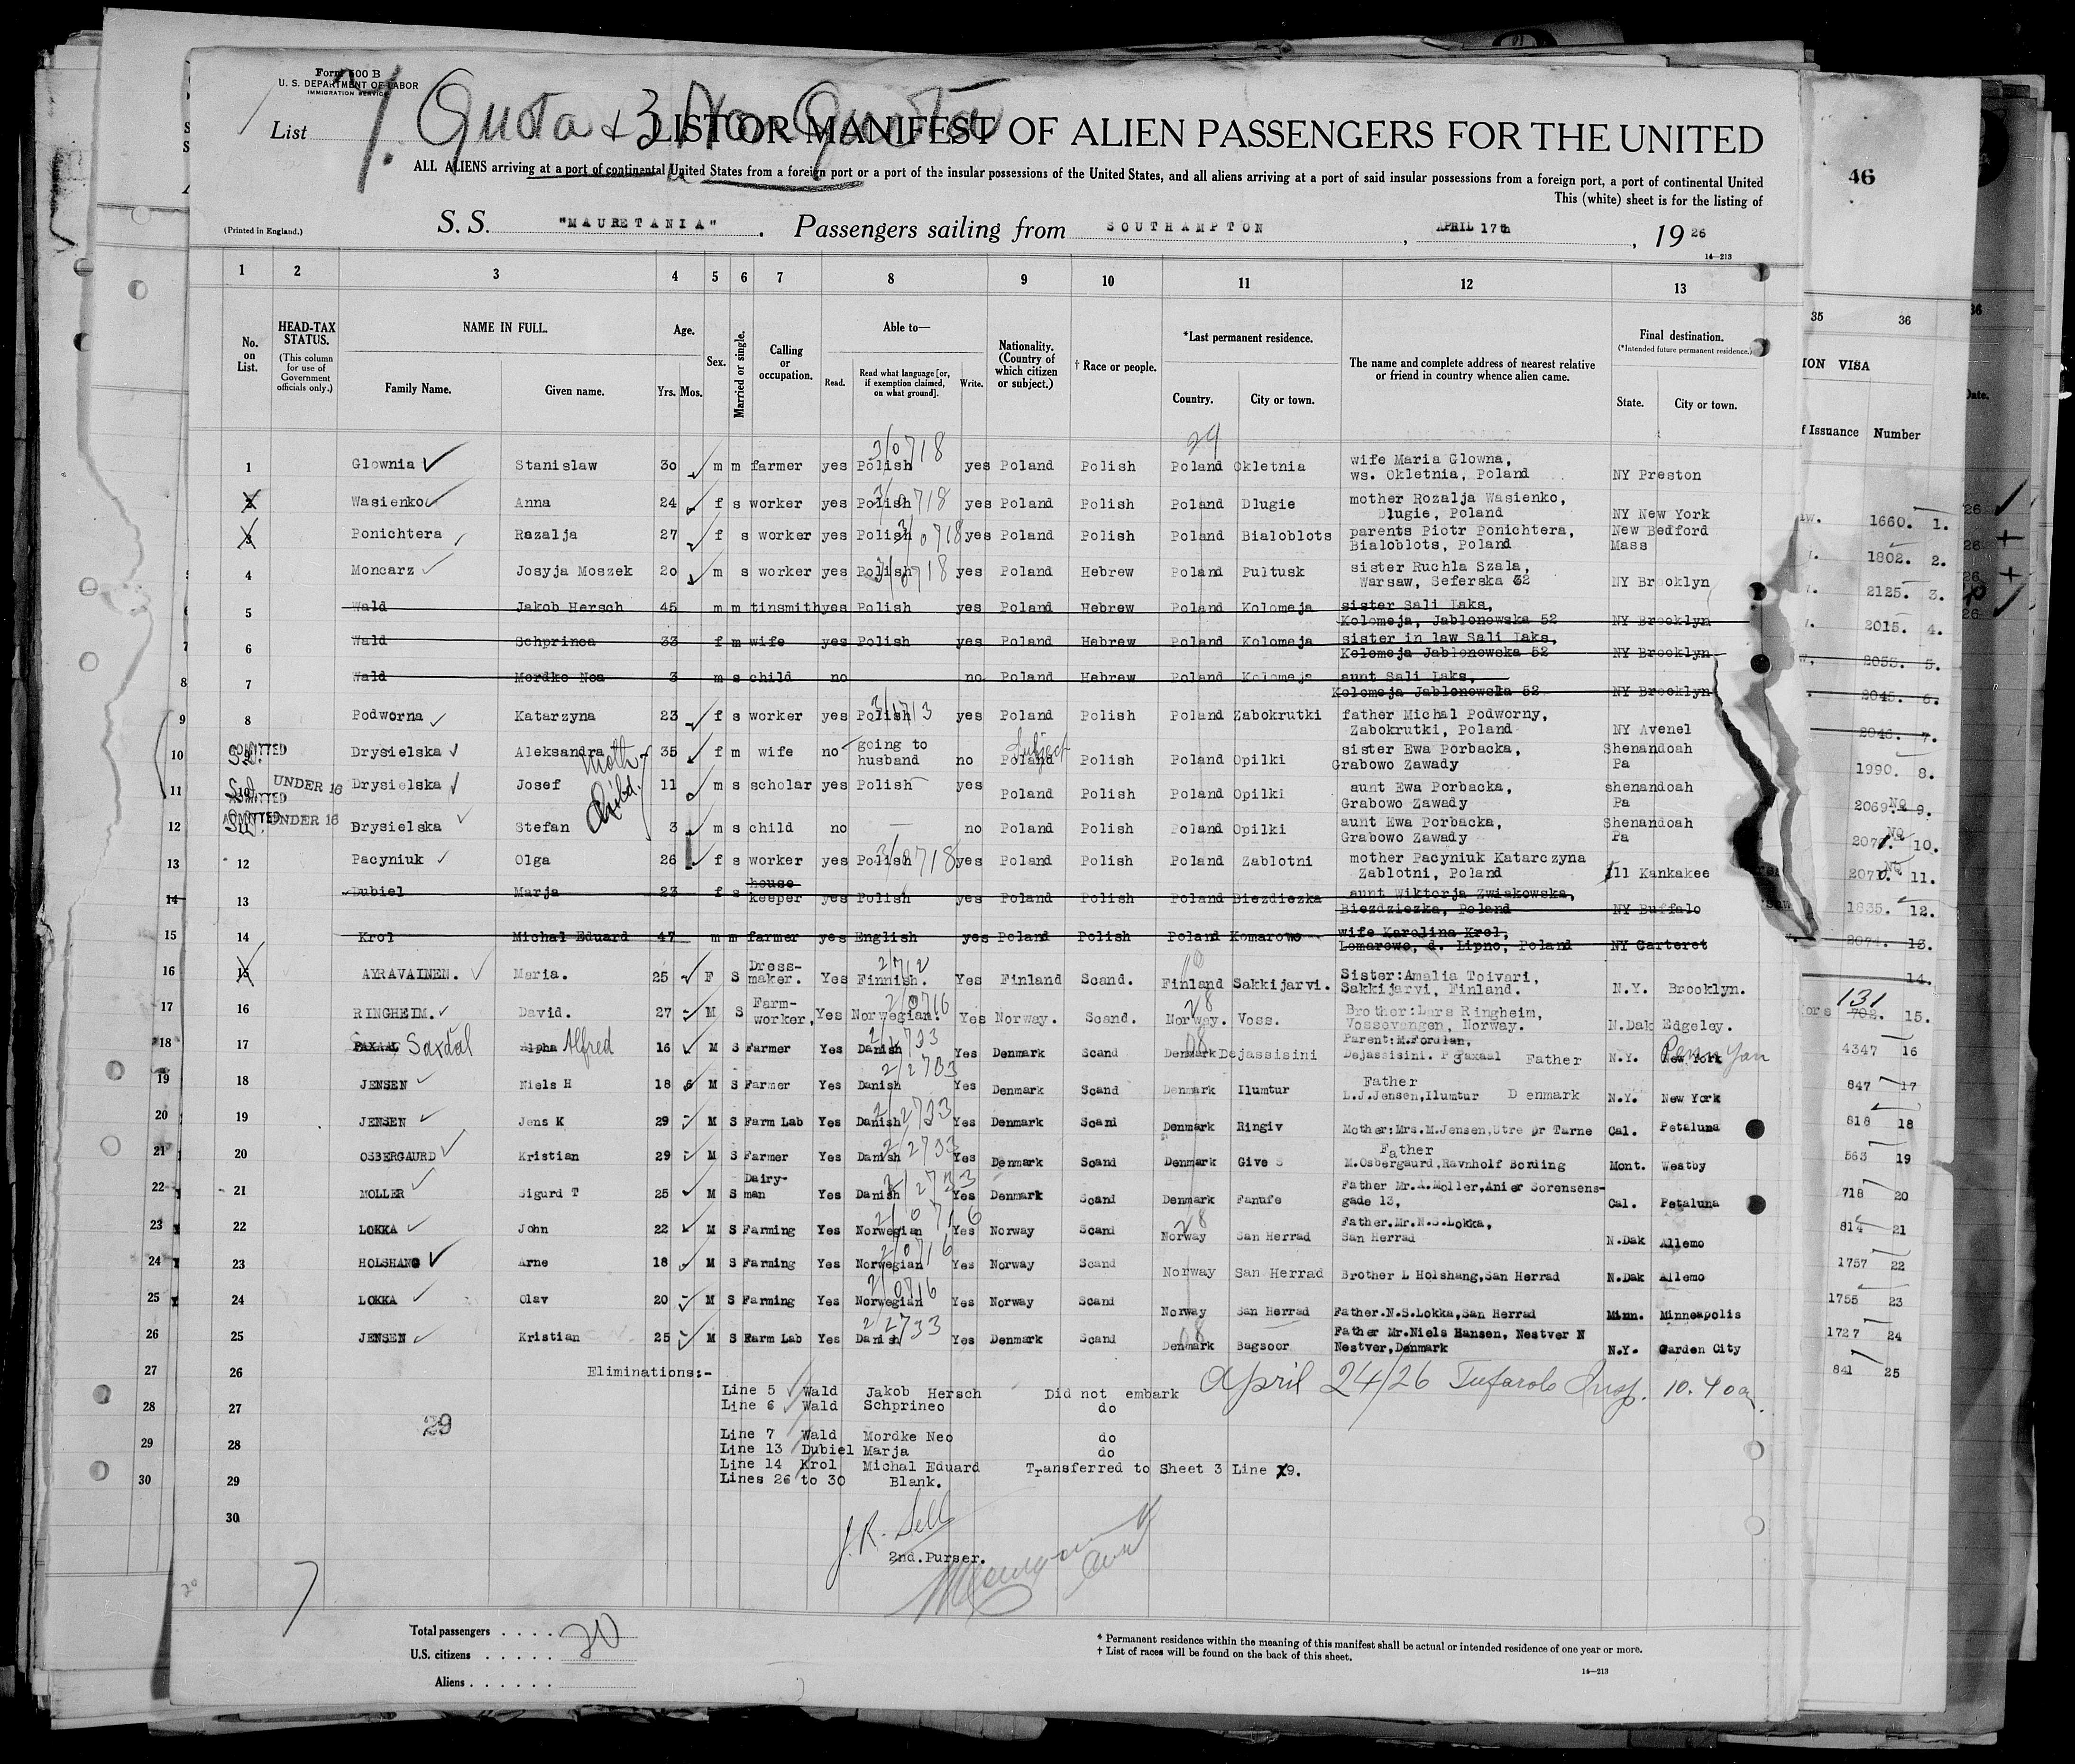 Form 500 B
U. S. DEPARTMENT OF LABOR
IMMIGRATION SERVICE
List 7. Quota & 3 Non Quota
LIST OR MANIFEST OF ALIEN PASSENGERS FOR THE UNITED
ALL ALIENS arriving at a port of continental United States from a foreign port or a port of the insular possessions of the United States, and all aliens arriving at a port of said insular possessions from a foreign port, a port of continental United
This (white) sheet is for the listing of
(Printed in England.)
S. S. "MAURETANIA". Passengers sailing from SOUTHAMPTON, APRIL 17th, 1926
14—213
46
1 2 3 4 5 6 7 8 9 10 11 12 13
35 36
No. on List.
HEAD-TAX STATUS.
(This column for use of Government officials only.)
NAME IN FULL.
Family Name. Given name.
Age.
Yrs. Mos.
Sex.
Married or single.
Calling or occupation.
Able to—
Read. Read what language [or, if exemption claimed, on what ground]. Write.
Nationality. (Country of which citizen or subject.)
† Race or people.
*Last permanent residence.
Country. City or town.
The name and complete address of nearest relative or friend in country whence alien came.
Final destination.
(*Intended future permanent residence.)
State. City or town.
ION VISA
f Issuance Number
Date.
29
1 Glownia Stanislaw 30 m m farmer yes Polish yes Poland Polish Poland Okletnia wife Maria Glowna, ws. Okletnia, Poland NY Preston
2 Wasienko Anna 24 f s worker yes Polish yes Poland Polish Poland Dlugie mother Rozalja Wasienko, Dlugie, Poland NY New York
3 Ponichtera Razalja 27 f s worker yes Polish yes Poland Polish Poland Bialoblots parents Piotr Ponichtera, Bialoblots, Poland New Bedford Mass
4 Moncarz Josyja Moszek 20 m s worker yes Polish yes Poland Hebrew Poland Pultusk sister Ruchla Szala, Warsaw, Seferska 32 NY Brooklyn
5 Wald Jakob Hersch 45 m m tinsmith yes Polish yes Poland Hebrew Poland Kolomeja sister Sali Laks, Kolomeja, Jablonowska 52 NY Brooklyn
6 Wald Schprinca 33 f m wife yes Polish yes Poland Hebrew Poland Kolomeja sister in law Sali Laks, Kolomeja Jablonowska 52 NY Brooklyn
7 Wald Mordko Noa 3 m s child no no Poland Hebrew Poland Kolomeja aunt Sali Laks, Kolomeja Jablonowska 52 NY Brooklyn
8 Podworna Katarzyna 23 f s worker yes Polish yes Poland Polish Poland Zabokrutki father Michal Podworny, Zabokrutki, Poland NY Avenel
ADMITTED
9 Drysielska Aleksandra Moth- 35 f m wife no going to husband no Poland Subject Polish Poland Opilki sister Ewa Porbacka, Grabowo Zawady Shenandoah Pa
UNDER 16
10 Drysielska Josef Child. 11 m s scholar yes Polish yes Poland Polish Poland Opilki aunt Ewa Porbacka, Grabowo Zawady shenandoah Pa
ADMITTED
ADMITTED UNDER 16
Drysielska Stefan 3 m s child no — no Poland Polish Poland Opilki aunt Ewa Porbacka, Grabowo Zawady Shenandoah Pa
12 Pacyniuk Olga 26 f s worker yes Polish yes Poland Polish Poland Zablotni mother Pacyniuk Katarczyna Zablotni, Poland Ill Kankakee
13 Dubiel Marja 23 f s house keeper yes Polish yes Poland Polish Poland Biezdiezka aunt Wiktorja Zwiakowska, Biezdziezka, Poland NY Buffalo
14 Krol Michal Eduard 47 m m farmer yes English yes Poland Polish Poland Komarowo wife Karolina Krol, Lomarowo, d. Lipno, Poland NY Carteret
15 AYRAVAINEN. Maria. 25 F S Dress-maker. Yes Finnish. Yes Finland Scand. Finland Sakkijarvi. Sister:Amalia Toivari, Sakkijarvi, Finland. N.Y. Brooklyn.
16 RINGHEIM. David. 27 M S Farm-worker, Yes Norwegian. Yes Norway. Scand. Norway. Voss. Brother:Lars Ringheim, Vossevangen, Norway. N.Dak Edgeley.
17 PAXAAL Saxdal Alpha Alfred 16 M S Farmer Yes Danish Yes Denmark Scand Denmark Dejassisini Dejassisini. Father N.Y. New York Penn Yan
18 JENSEN Niels H 18 6 M S Farmer Yes Danish Yes Denmark Scand Denmark Ilumtur Father L.J.Jensen,Ilumtur Denmark N.Y. New York
19 JENSEN Jens K 29 M S Farm Lab Yes Danish Yes Denmark Scand Denmark Ringiv Mother:Mrs.M.Jensen,Stre pr Tarne Cal. Petaluma
20 OSBERGAURD Kristian 29 M S Farmer Yes Danish Yes Denmark Scand Denmark Give S Father M.Osbergaurd,Ravnholf Bording Mont. Westby
21 MOLLER Sigurd T 25 M S Dairy-man Yes Danish Yes Denmark Scand Denmark Fanufe Father Mr.A.Moller,Anier Sorensens-gade 13, Cal. Petaluna
22 LOKKA John 22 M S Farming Yes Norwegian Yes Norway Scand Norway San Herrad Father.Mr.N.S.Lokka, San Herrad N.Dak Allemo
23 HOLSHANG Arne 18 M S Farming Yes Norwegian Yes Norway Scand Norway San Herrad Brother L Holshang,San Herrad N.Dak Allemo
24 LOKKA Olav 20 M S Farming Yes Norwegian Yes Norway Scand Norway San Herrad Father.N.S.Lokka,San Herrad Minn. Minneapolis
25 JENSEN Kristian 25 M S Farm Lab Yes Danish Yes Denmark Scand Denmark Bagsoor Father Mr.Niels Hansen, Nestver N Nestver,Denmark N.Y. Garden City
26 Eliminations:-
Line 5 Wald Jakob Hersch Did not embark
April 24/26 Tufarolo Insp. 10.40a.
27 Line 6 Wald Schprineo do
29
Line 7 Wald Mordke Neo do
28 Line 13 Dubiel Marja do
Line 14 Krol Michal Eduard Transferred to Sheet 3 Line 19.
29 Lines 26 to 30 Blank.
30
J. R. Sell
2nd.Purser.
7
Total passengers . . . . 20
U.S. citizens . . . . .
Aliens . . . . . .
* Permanent residence within the meaning of this manifest shall be actual or intended residence of one year or more.
† List of races will be found on the back of this sheet.
14—213
1660. 1.
1802. 2.
2125. 3.
2015. 4.
2055. 5.
2045. 6.
2046. 7.
1990. 8.
2069 NQ 9.
NQ 10.
NQ 11.
1835. 12.
2074. 13.
14.
131
702. 15.
4347 16
847 17
818 18
563 19
718 20
814 21
1757 22
1755 23
1727 24
841 25